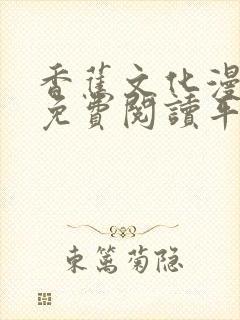 香蕉文化漫
免費閱讀平
東篱菊隐